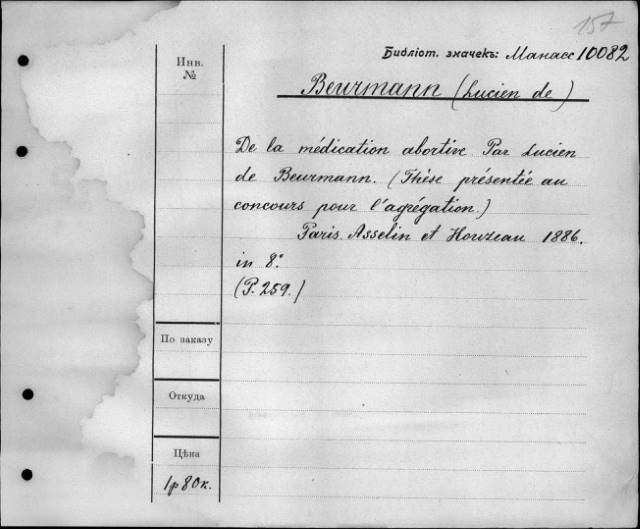 157
Библіот. значекъ: Манасс 10082
Инв.
№
Beurmann (Lucien de)
De la médication abortive Par Lucien
de Beurmann. (Thèse présentée au
concours pour l'agrégation.)
Paris. Asselin et Houzeau 1886.
in 8°
(P. 259.)
По заказу
Откуда
Цѣна
1р 80к.